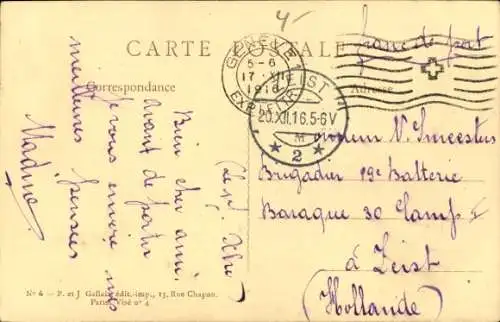 4
CARTE POSTALE
franc de port
Correspondance
Adresse
GENÈVE 1
5-6
17.XII
1916
EXP. LETTR.
ZEIST
20.XII.16.5-6V
M
2
Bien cher ami
avant de partir
je vous envoie mes
meilleures pensées
Monsieur V.
Brigadier 19e Batterie
Baraque 30 Camp
à Zeist
(Hollande)
No 4 - P. et J. Gallais, édit.-imp., 13, Rue Chapon.
Paris, Visé no 4